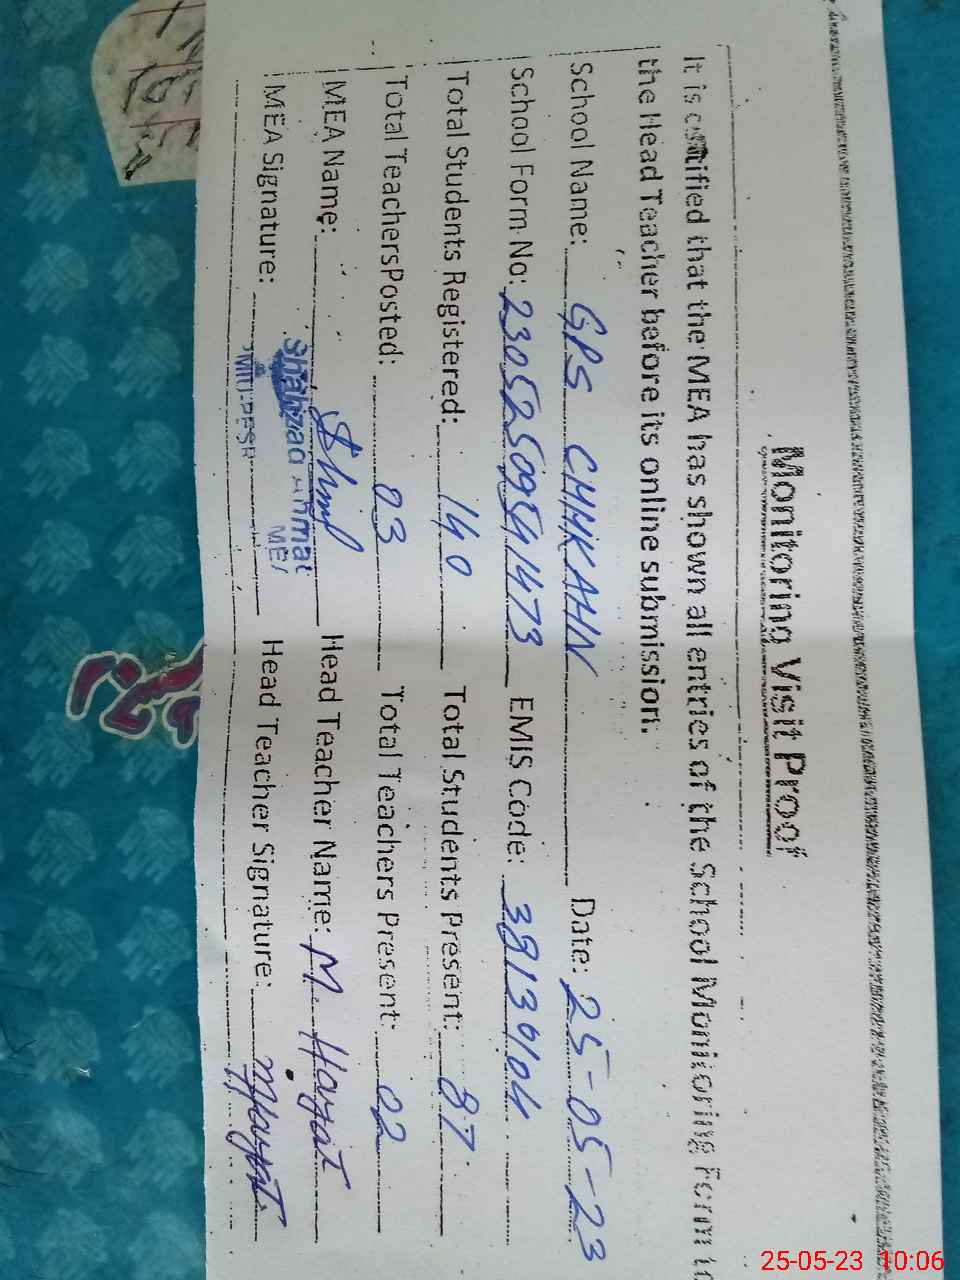 Monitoring Visit Proof
It is certified that the MEA has shown all entries of the School Monitoring Form to
the Head Teacher before its online submission.
School Name: GPS CHHKAHN Date: 25-05-23
School Form No: 23052509541473 EMIS Code: 38139104
Total Students Registered: 140 Total Students Present: 87
Total Teachers Posted: 03 Total Teachers Present: 02
MEA Name: Head Teacher Name: M. Hayat
MEA Signature: Head Teacher Signature: MHayat
Shahzad Ahmat
MEA
25-05-23 10:06